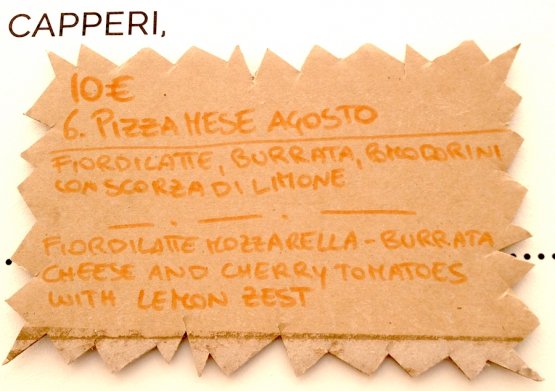 CAPPERI,
10€
6. PIZZA MESE AGOSTO
FIORDILATTE, BURRATA, POMODORINI
CON SCORZA DI LIMONE
FIORDILATTE MOZZARELLA - BURRATA
CHEESE AND CHERRY TOMATOES
WITH LEMON ZEST